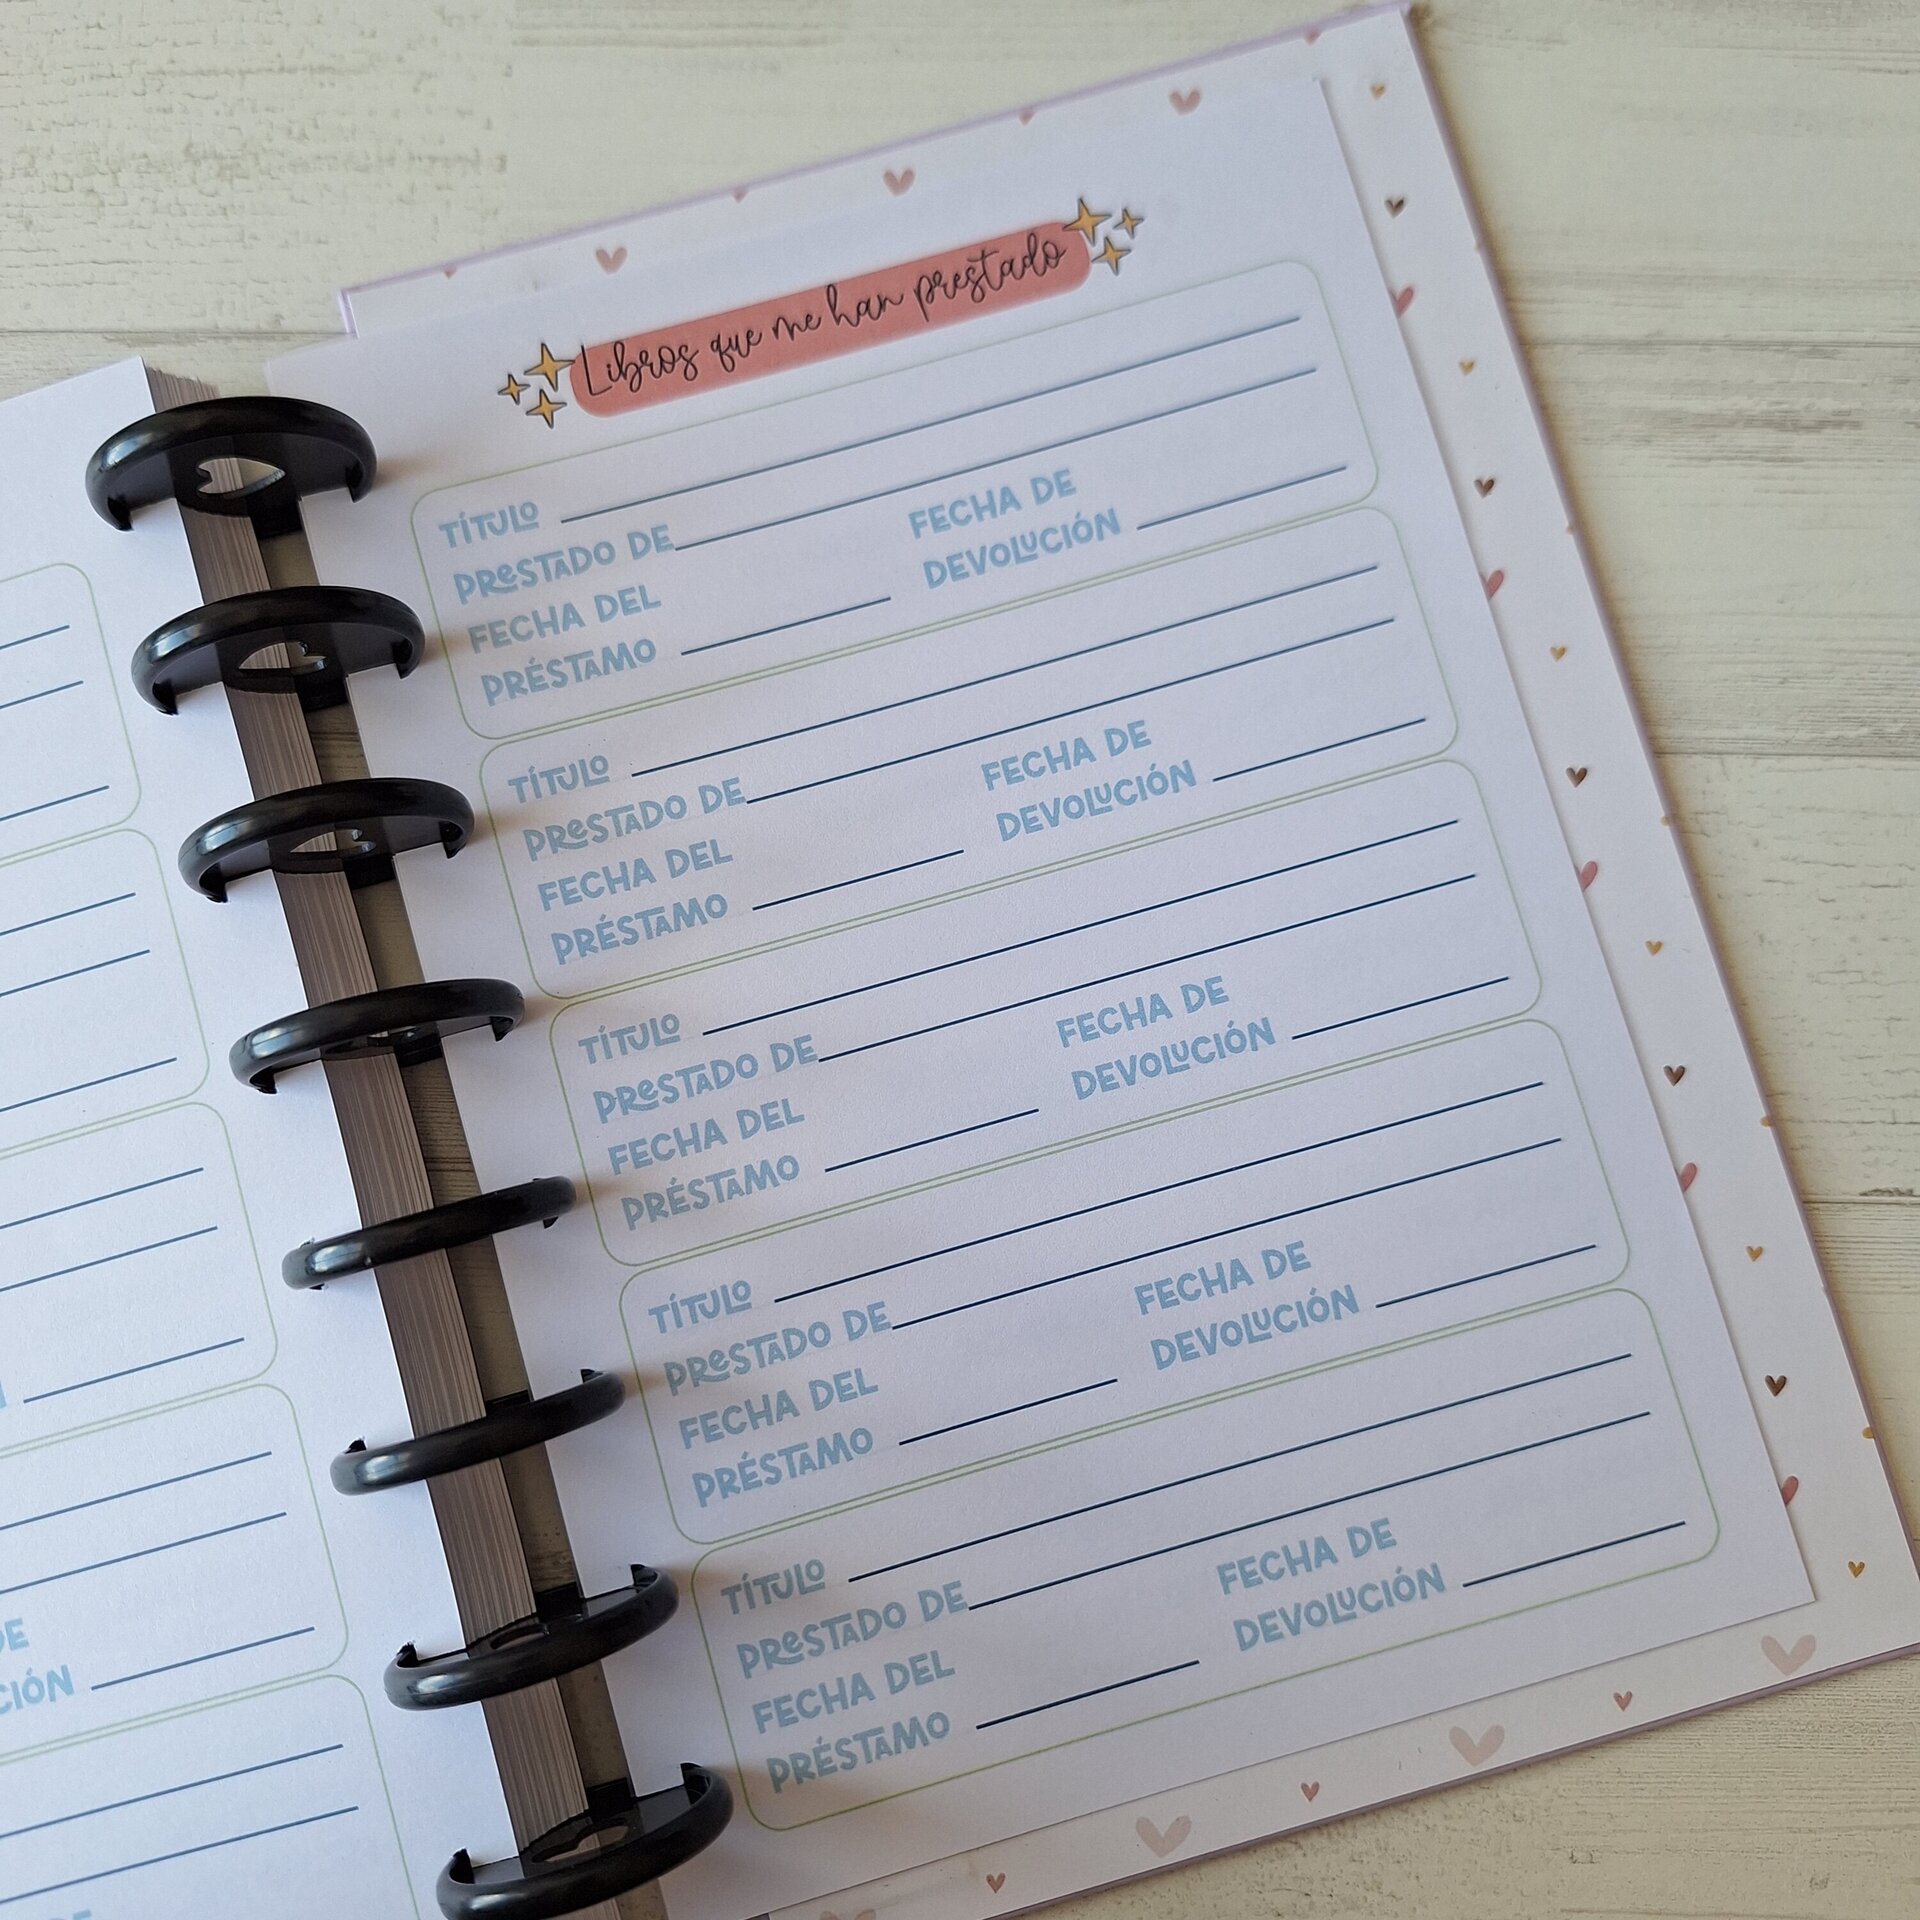 Libros que me han prestado
TÍTULO
PRESTADO DE
FECHA DEL
PRÉSTAMO
FECHA DE
DEVOLUCIÓN
TÍTULO
PRESTADO DE
FECHA DEL
PRÉSTAMO
FECHA DE
DEVOLUCIÓN
TÍTULO
PRESTADO DE
FECHA DEL
PRÉSTAMO
FECHA DE
DEVOLUCIÓN
TÍTULO
PRESTADO DE
FECHA DEL
PRÉSTAMO
FECHA DE
DEVOLUCIÓN
TÍTULO
PRESTADO DE
FECHA DEL
PRÉSTAMO
FECHA DE
DEVOLUCIÓN